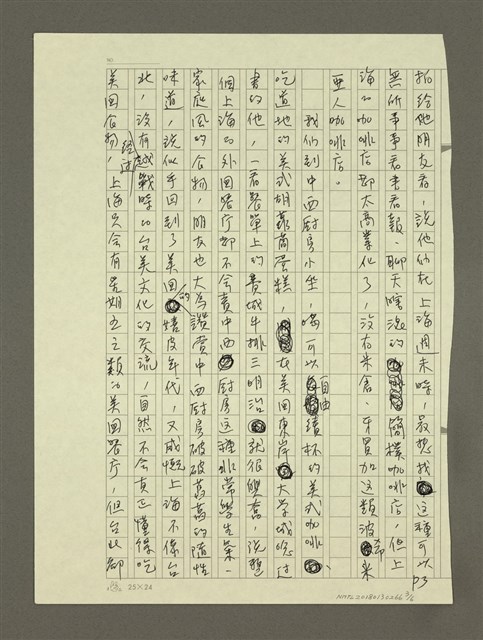 拍給他朋友看，說他們在上海週末時，最想找這種可以
無所事事看書看報、聊天瞎混的簡樸咖啡店，但上
海的咖啡店都太商業化了，沒有朱倉、牙買加這類波希米
亞人咖啡店。
我們到中西廚房小坐，喝可以自由續杯的美式咖啡、
吃道地的美式胡蘿蔔蛋糕，在美國東岸大学城唸过
書的他，一看餐單上的費城牛排三明治就很興奮，說整
個上海的外国餐厅都不会賣中西廚房这種非常學生菜、
家庭風的食物，朋友也大為讚賞中西廚房破破舊舊的隨性
味道，說似乎回到了美国的嬉皮年代，又感慨上海不像台
北，沒有經过越戰時的台美文化的交流，自然不会真正懂得吃
美国食物，上海只会有星期五之類的美国餐厅，但台北卻
P3
25×24
NMTL20180130266 3/6